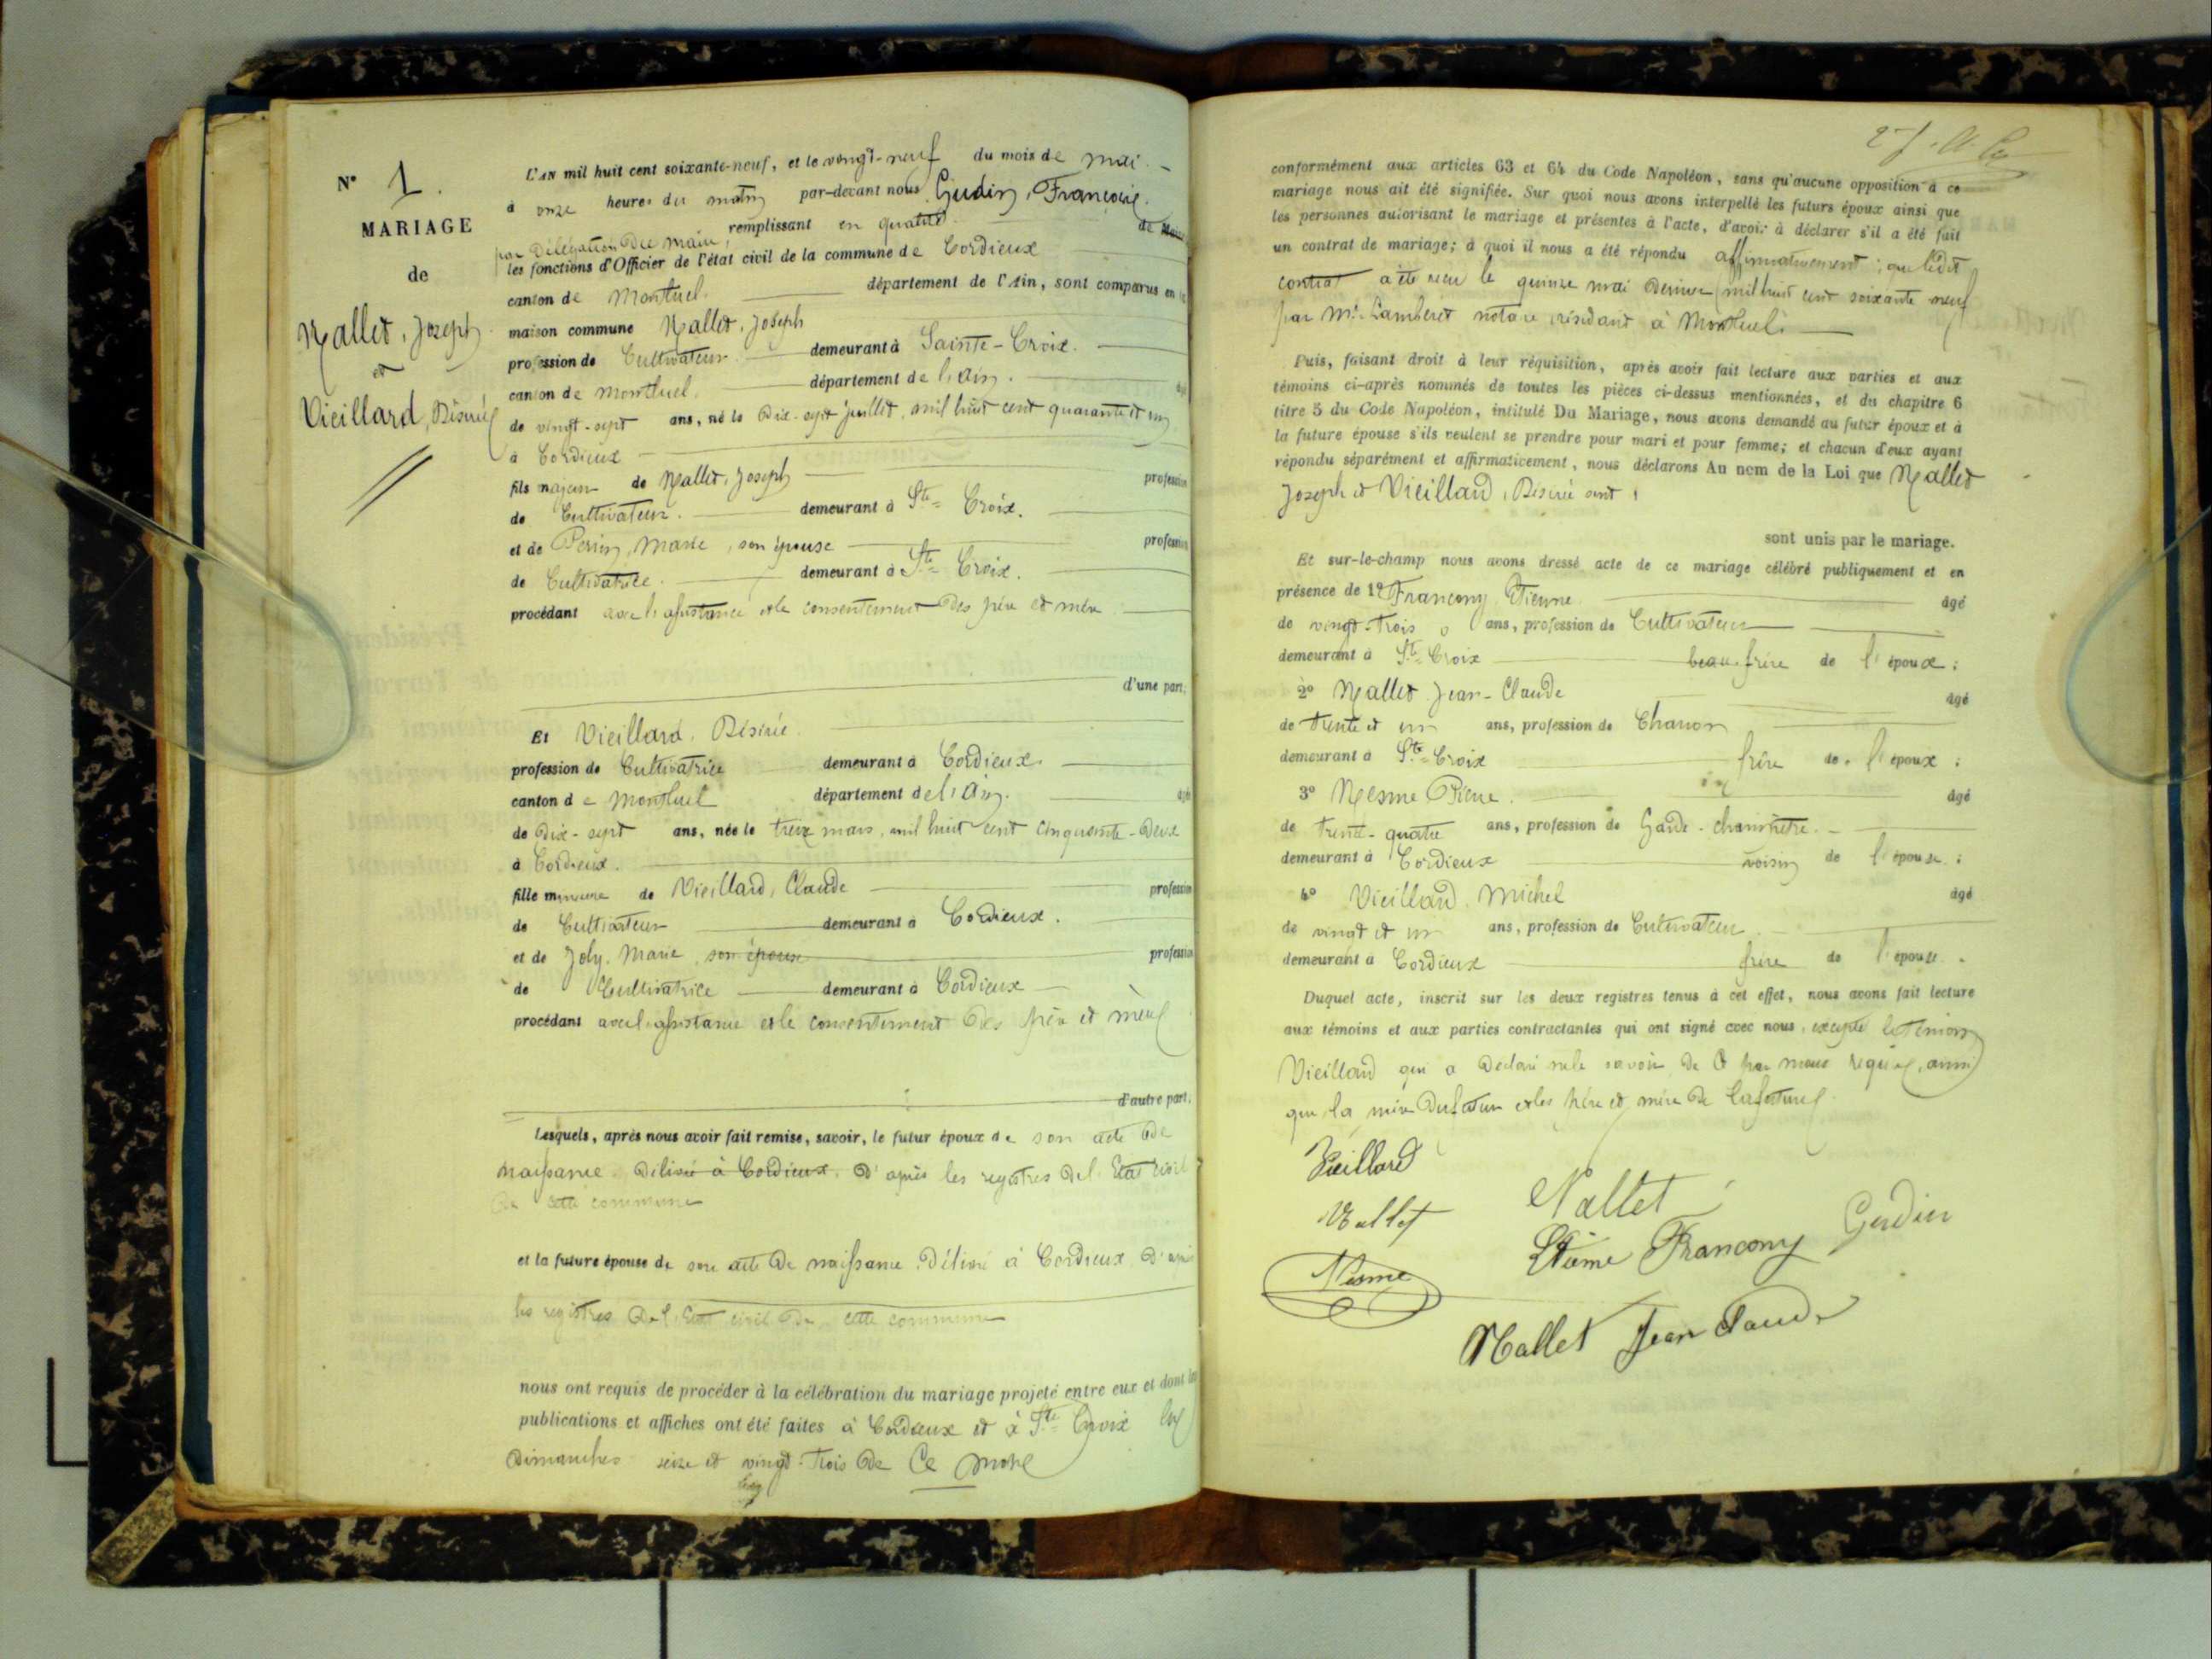 N° 1.
MARIAGE
de
Nallet, Joseph
et
Vieillard, Désirée
L'AN mil huit cent soixante-neuf, et le vingt-neuf du mois de mai.
à onze heures du matin par-devant nous Gudin, François.
remplissant en qualité de Maire
par Délégation du maire,
les fonctions d'Officier de l'état civil de la commune de Cordieux
canton de Montluel. département de l'Ain, sont comparus en la
maison commune Nallet, Joseph
profession de Cultivateur. demeurant à Sainte-Croix.
canton de Montluel. département de l'ain. âgé
de vingt-sept ans, né le dix-sept juillet, mil huit cent quarante et un
à Cordieux
fils majeur de Nallet, Joseph profession
de Cultivateur. demeurant à Ste Croix.
et de Perrin, Marie, son épouse profession
de Cultivatrice. demeurant à Ste Croix.
procédant avec l'assistance et le consentement des père et mère
d'une part.
Et Vieillard, Désirée.
profession de Cultivatrice demeurant à Cordieux.
canton de Montluel département de l'ain. âgée
de dix-sept ans, née le treize mars, mil huit cent cinquante-deux
à Cordieux.
fille mineure de Vieillard, Claude profession
de Cultivateur demeurant à Cordieux.
et de Joly, Marie, son épouse profession
de Cultivatrice demeurant à Cordieux
procédant avec l'assistance et le consentement des père et mère
d'autre part.
Lesquels, après nous avoir fait remise, savoir, le futur époux de son acte de
naissance délivré à Cordieux, d'après les registres de l'Etat civil
de cette commune
et la future épouse de son acte de naissance, délivré à Cordieux d'après
les registres de l'Etat civil de cette commune
nous ont requis de procéder à la célébration du mariage projeté entre eux et dont les
publications et affiches ont été faites à Cordieux et à Ste Croix les
dimanches seize et vingt-trois de ce mois
conformément aux articles 63 et 64 du Code Napoléon, sans qu'aucune opposition à ce
mariage nous ait été signifiée. Sur quoi nous avons interpellé les futurs époux ainsi que
les personnes autorisant le mariage et présentes à l'acte, d'avoir à déclarer s'il a été fait
un contrat de mariage; à quoi il nous a été répondu affirmativement; que ledit
contrat a été reçu le quinze mai dernier mil huit cent soixante neuf
par Me Lamberet notaire résidant à Montluel.
Puis, faisant droit à leur réquisition, après avoir fait lecture aux parties et aux
témoins ci-après nommés de toutes les pièces ci-dessus mentionnées, et du chapitre 6
titre 5 du Code Napoléon, intitulé Du Mariage, nous avons demandé au futur époux et à
la future épouse s'ils veulent se prendre pour mari et pour femme; et chacun d'eux ayant
répondu séparément et affirmativement, nous déclarons Au nom de la Loi que Nallet
Joseph et Vieillard, Désirée sont
sont unis par le mariage.
Et sur-le-champ nous avons dressé acte de ce mariage célébré publiquement et en
présence de 1° Francony, Etienne. âgé
de vingt-trois ans, profession de Cultivateur
demeurant à Ste Croix beau-frère de l'époux;
2° Nallet Jean-Claude âgé
de trente et un ans, profession de Charron
demeurant à Ste Croix frère de l'époux;
3° Nesme Pierre. âgé
de trente-quatre ans, profession de Garde-champêtre.
demeurant à Cordieux voisin de l'épouse;
4° Vieillard, Michel âgé
de vingt et un ans, profession de Cultivateur
demeurant à Cordieux frère de l'épouse.
Duquel acte, inscrit sur les deux registres tenus à cet effet, nous avons fait lecture
aux témoins et aux parties contractantes qui ont signé avec nous, excepté le témoin
Vieillard qui a déclaré ne le savoir, de ce par nous requis, ainsi
que la mère du futur et les père et mère de la future.
Vieillard
Nallet
Nallet
Gudin
Etiene Francony
Nesme
Nallet Jean Claude